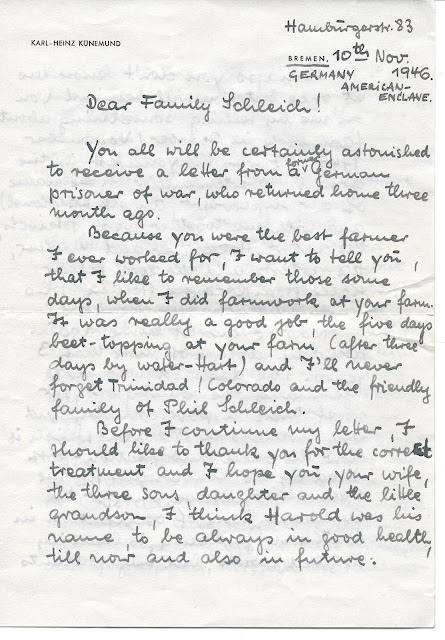 Hamburgerstr. 83
KARL-HEINZ KÜNEMUND
BREMEN, 10th Nov.
GERMANY 1946.
AMERICAN-
ENCLAVE.
Dear Family Schleich!
You all will be certainly astonished
to receive a letter from a former German
prisoner of war, who returned home three
month ago.
Because you were the best farmer
I ever worked for, I want to tell you,
that I like to remember those some
days, when I did farmwork at your farm.
It was really a good job, the five days
beet-topping at your farm (after three
days by water-Hart) and I'll never
forget Trinidad / Colorado and the friendly
family of Phil Schleich.
Before I continue my letter, I
should like to thank you for the correct
treatment and I hope you, your wife,
the three sons, daughter and the little
grandson, I think Harold was his
name, to be always in good health,
till now and also in future.